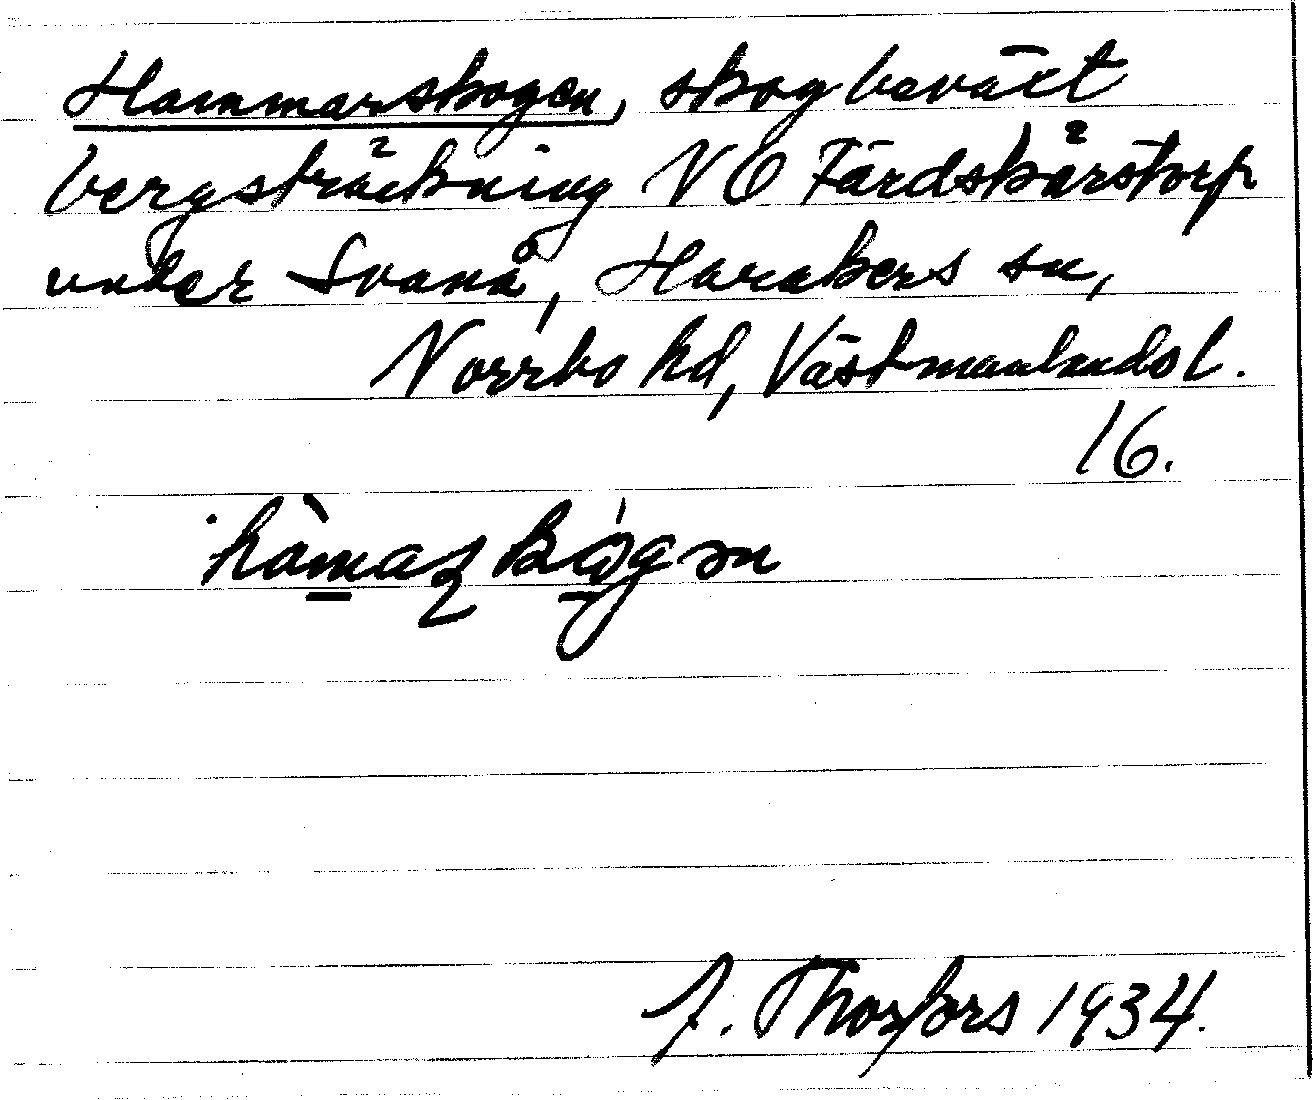 Hammarskogen, skogbeväxt
bergsträckning NO Färdskårstorp
under Svanå, Harakers sn,
Norrbo hd, Västmanlands l.
16.
J. Thorfors 1934.